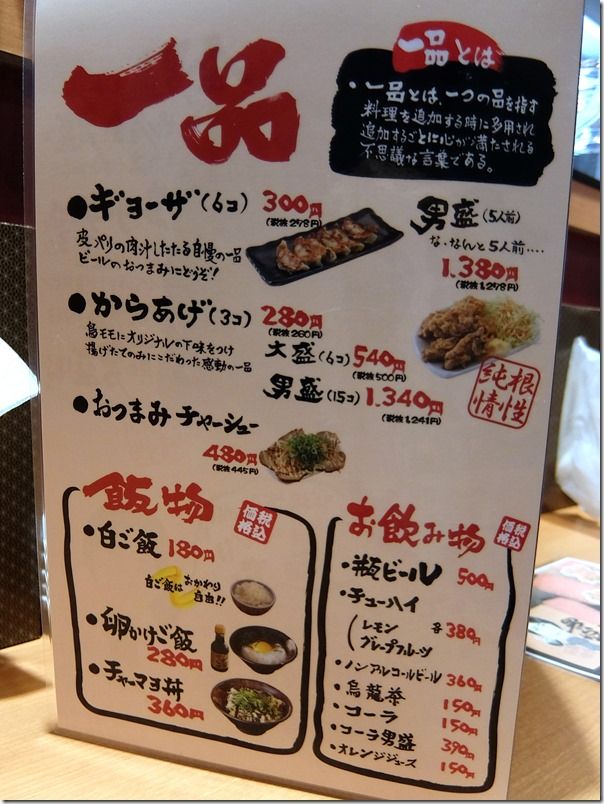 一品
一品とは
・一品とは、一つの品を指す
料理を追加する時に多用され
追加するごとに心が満たされる
不思議な言葉である。
●ギョーザ(6コ) 300円
(税抜278円)
皮パリの肉汁したたる自慢の一品
ビールのおつまみにどうぞ!
男盛(5人前)
な・なんと5人前‥‥
1,380円
(税抜1,278円)
●からあげ(3コ) 280円
(税抜260円)
鳥モモにオリジナルの下味をつけ
揚げたてのみにこだわった感動の一品
大盛(6コ) 540円
(税抜500円)
男盛(15コ) 1,340円
(税抜1,241円)
純情
根性
●おつまみチャーシュー
480円
(税抜445円)
飯物
税込
価格
・白ご飯 180円
白ご飯はおかわり
自由!!
・卵かけご飯
280円
・チャーマヨ丼
360円
お飲み物
税込
価格
・瓶ビール 500円
・チューハイ
(レモン
グレープフルーツ
各380円
・ノンアルコールビール 360円
・烏龍茶 150円
・コーラ 150円
・コーラ男盛 390円
・オレンジジュース 150円